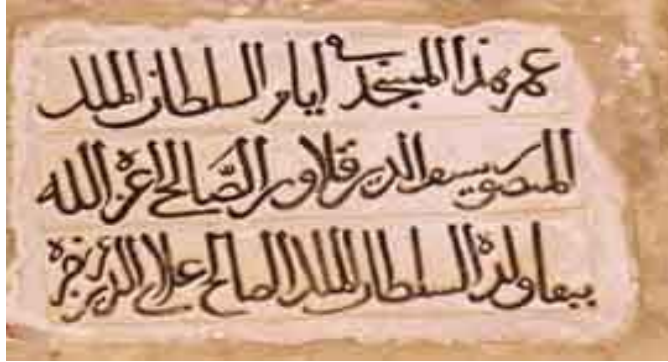 عمر هذا المسجد في ايام السلطان الملك
المنصور سيف الدين قلاوون الصالحي اعز الله
ببقا ولده السلطان الملك الصالح علاء الدين